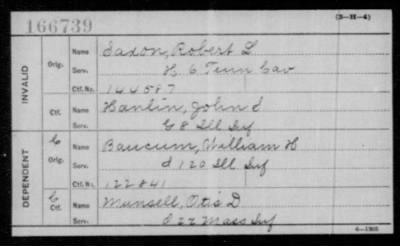 166739
(3—H—4)
INVALID
Orig.
Name Saxon, Robert L
Serv. H 6 Tenn Cav
Ctf. No. 144587
Ctf.
Name Hanlin, John S
Serv. G 8 Ill Inf
DEPENDENT
C
Orig.
Name Baucum, William H
Serv. d 120 Ill Inf
Ctf. No. 122841
C
Ctf.
Name Munsell, Otis D
Serv. D 22 Mass Inf